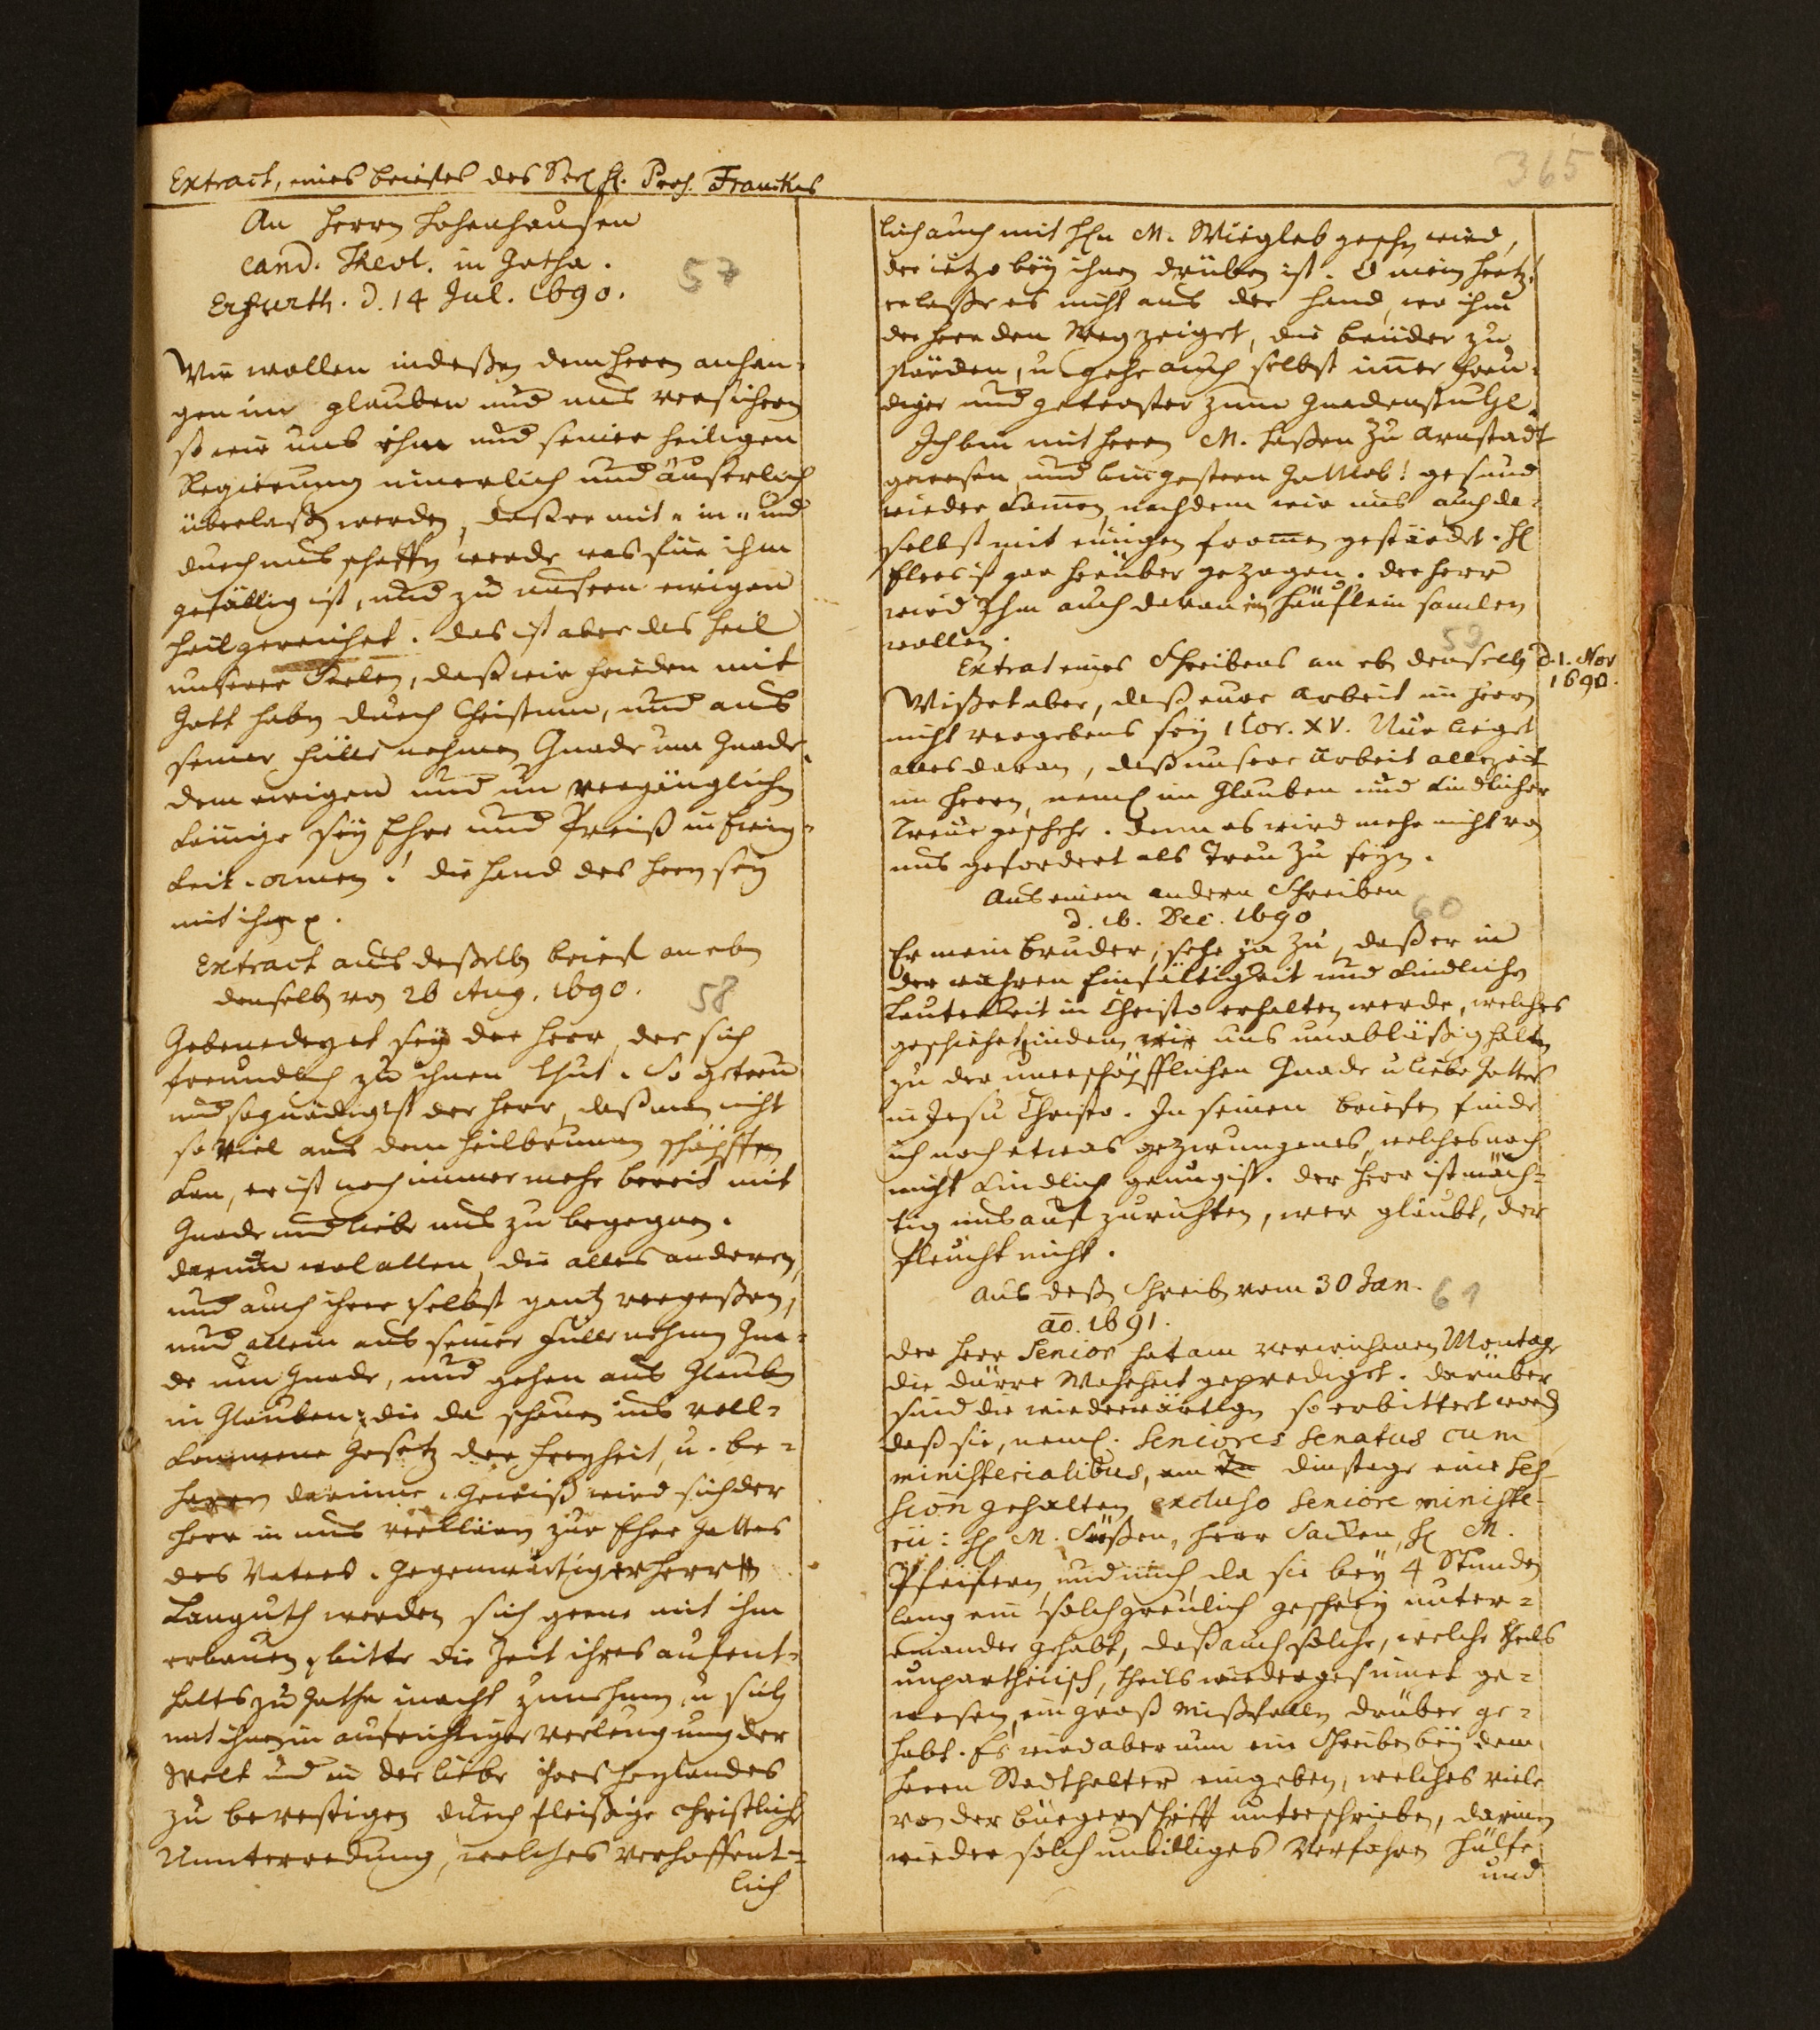 365
Extract, eines briefes des Seel. H. Prof. Franckes
An Herrn Hohenhausen
cand. Theol. in Gotha.
57
Erfurth. d. 14 Jul. 1690.
Wir wollen indeßen dem Herrn anhan-
gen im glauben und uns versichern
so wir uns ihm und seiner heiligen
Regierung innerlich und äußerlich
überlaßen werden, daß er mit - in - und
durch uns schaffen werde was für ihm
gefällig ist, und zu unserm ewigen
heil gereichet. das ist aber das heil
unserer Seelen, daß wir frieden mit
Gott haben durch Christum, und aus
seiner fülle nehmen Gnade um Gnade.
dem ewigen und un vergänglichen
Könige sey Ehre und Preiß in Ewig-
keit. amen! die Hand des Herrn sey
mit ihm p.
Extract aus deßelben brief an eben
denselben von 26 Aug. 1690.
58
Gebenedeyet sey der Herr, der sich
freundlich zu ihnen thut. So getreu
und so gnädig ist der Herr, daß man nicht
so viel aus dem heilbrunnen schöpffen
kan, er ist noch immer mehr bereit mit
Gnade und liebe uns zu begegnen.
darum wol allen, die alles anderen,
und auch ihrer selbst gantz vergeßen,
und allein aus seiner fülle nehmen Gna-
de um Gnade, und gehen aus Glauben
in Glauben; die da schauen ins voll-
kommene Gesetz der freyheit, u. be-
harren darinne. Gewiß wird sich der
Herr in uns verklären zur Ehre Gottes
des Vaters. Gegenwärtiger Herr
Languth werden sich gerne mit ihm
erbauen, bitte die Zeit ihres aufent-
halts zu Gotha in acht zunehmen, u sich
mit ihnen in aufrichtiger verleugnung der
Welt und in der liebe ihres heylandes
zu bevestigen durch fleißige christliche
Unnterredung, welches verhoffent-
lich
lich auch mit Hrn M. Wiegleb geschen wird,
der ietzo bey ihnen drüben ist. O mein Hertz!
erlaße es nicht aus der Hand, wo ihm
der Herr den Weg zeiget, die brüder zu
stärcken, u gehe auch selbst immer freu-
diger und getroster zum Gnadenstuhl.
Ich bin mit Herrn M. Laßen zu Arnstadt
gewesen, und bin gestern Gottlob! gesund
wieder komen, nachdem wir uns auch da-
selbst mit einigen fromen gestärckt. H
ist gar herüber gezogen. der Herr
wird Ihm auch davon ein häuflein samlen
wollen.
59
Extrat eines Schreibens an eb. denselben d. 1. Nov
1690.
Wißet aber, daß eure arbeit im Herrn
nicht vergebens sey 1 Cor. XV. Nur lieget
alles daran, daß unsere arbeit allezeit
im Herrn, neml. im Glauben und kindlicher
Treue geschehe. denn es wird mehr nicht von
uns gefordert als Treu zu seyn.
Aus einem andern Schreiben
d. 16. Dec. 1690
60
Er mein bruder, sehe ja zu, daß er in
der wahren Einfältigkeit und kindlichen
Lauterkeit in Christo erhalten werde, welches
geschiehet, indem wir uns unabläßig halten
zu der unerschöpfflichen Gnade u liebe Gottes
in Jesu Christo. In seinen briefen finde
ich noch etwas gezwungenes, welches noch
nicht kindlich genug ist. der Herr ist mäch-
tig uns auf zurichten, wer gläubt, der
fleucht nicht.
Aus deß. Schreib. vom 30 Jan.
61
ao. 1691.
der Herr Senior hat am verwichenen Montage
die dürre Wahrheit geprediget. darüber
sind die wiederwärtigen so erbittert word.
daß sie, neml. Seniores Senatus cum
ministerialibus, am dinstage eine Ses-
sion gehalten excluso Seniore ministe-
rii: H M. Laßen, Herr Sacken, H M.
Pfeifern, und mich, da sie bey 4 Stunden
lang ein solch greulich geschrey unter-
einander gehabt, daß auch solche, welche theils
unpartheiisch, theils wiedergesinnet ge-
wesen, ein groß mißfallen drüber ge-
habt. Es wird aber nun ein Schreiben bey dem
Herrn Stadthalter eingeben, welches viele
von der bürgerschafft unterschrieben, darinn
wieder solch unbilliges Verfahren Hülfe
und